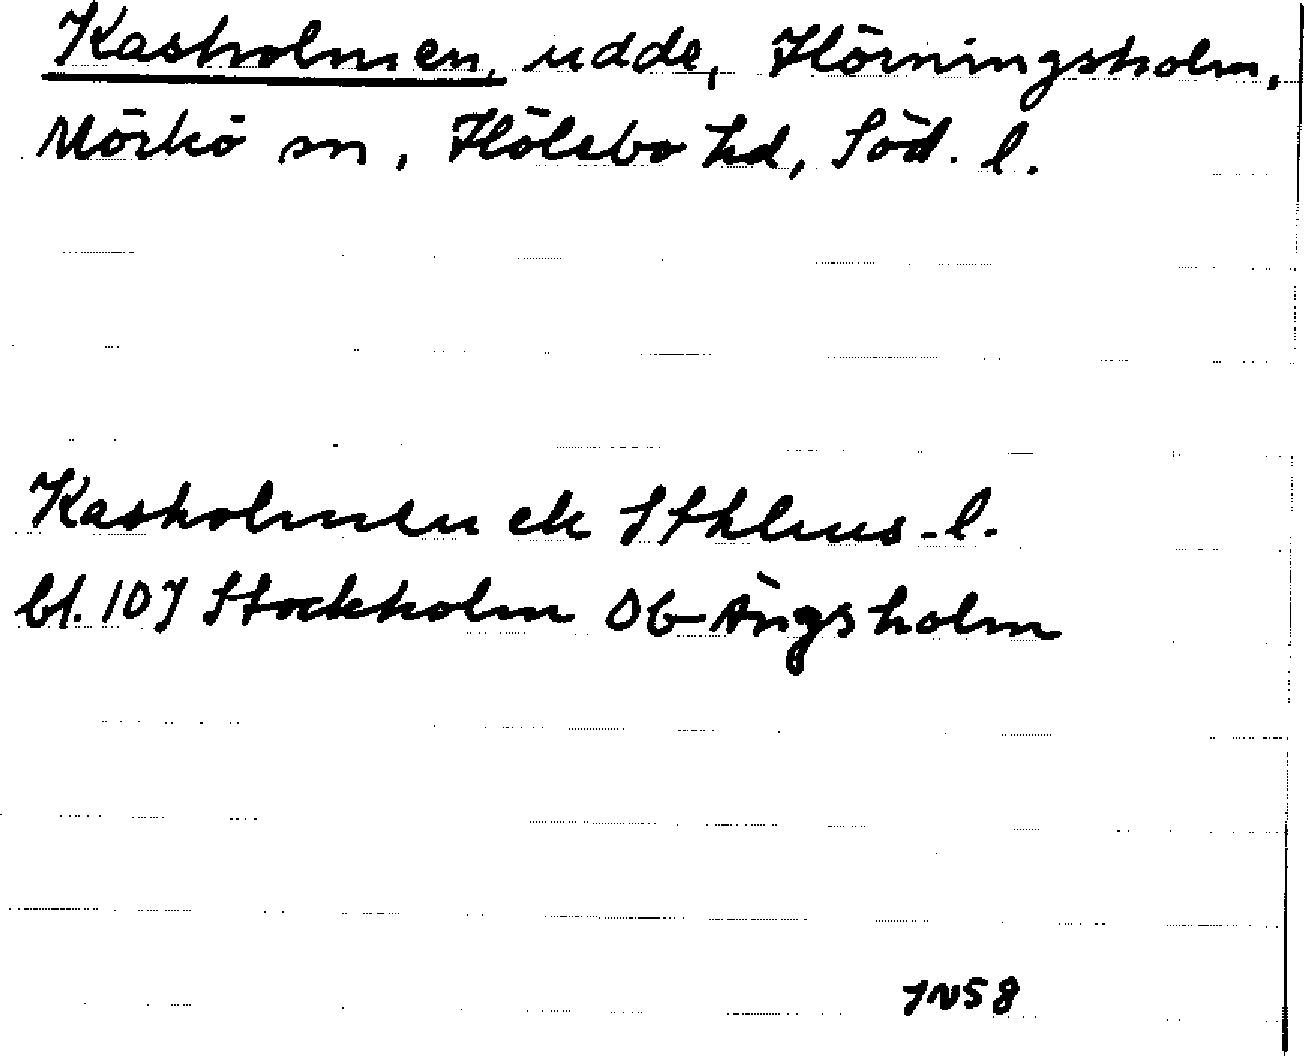 Kasholmen, udde, Hörningsholm,
Mörkö sn, Hölebo hd, Söd. l.
Kasholmen ek Sthlms-l.
bl. 107 Stockholm Ob Ängsholm
7N58